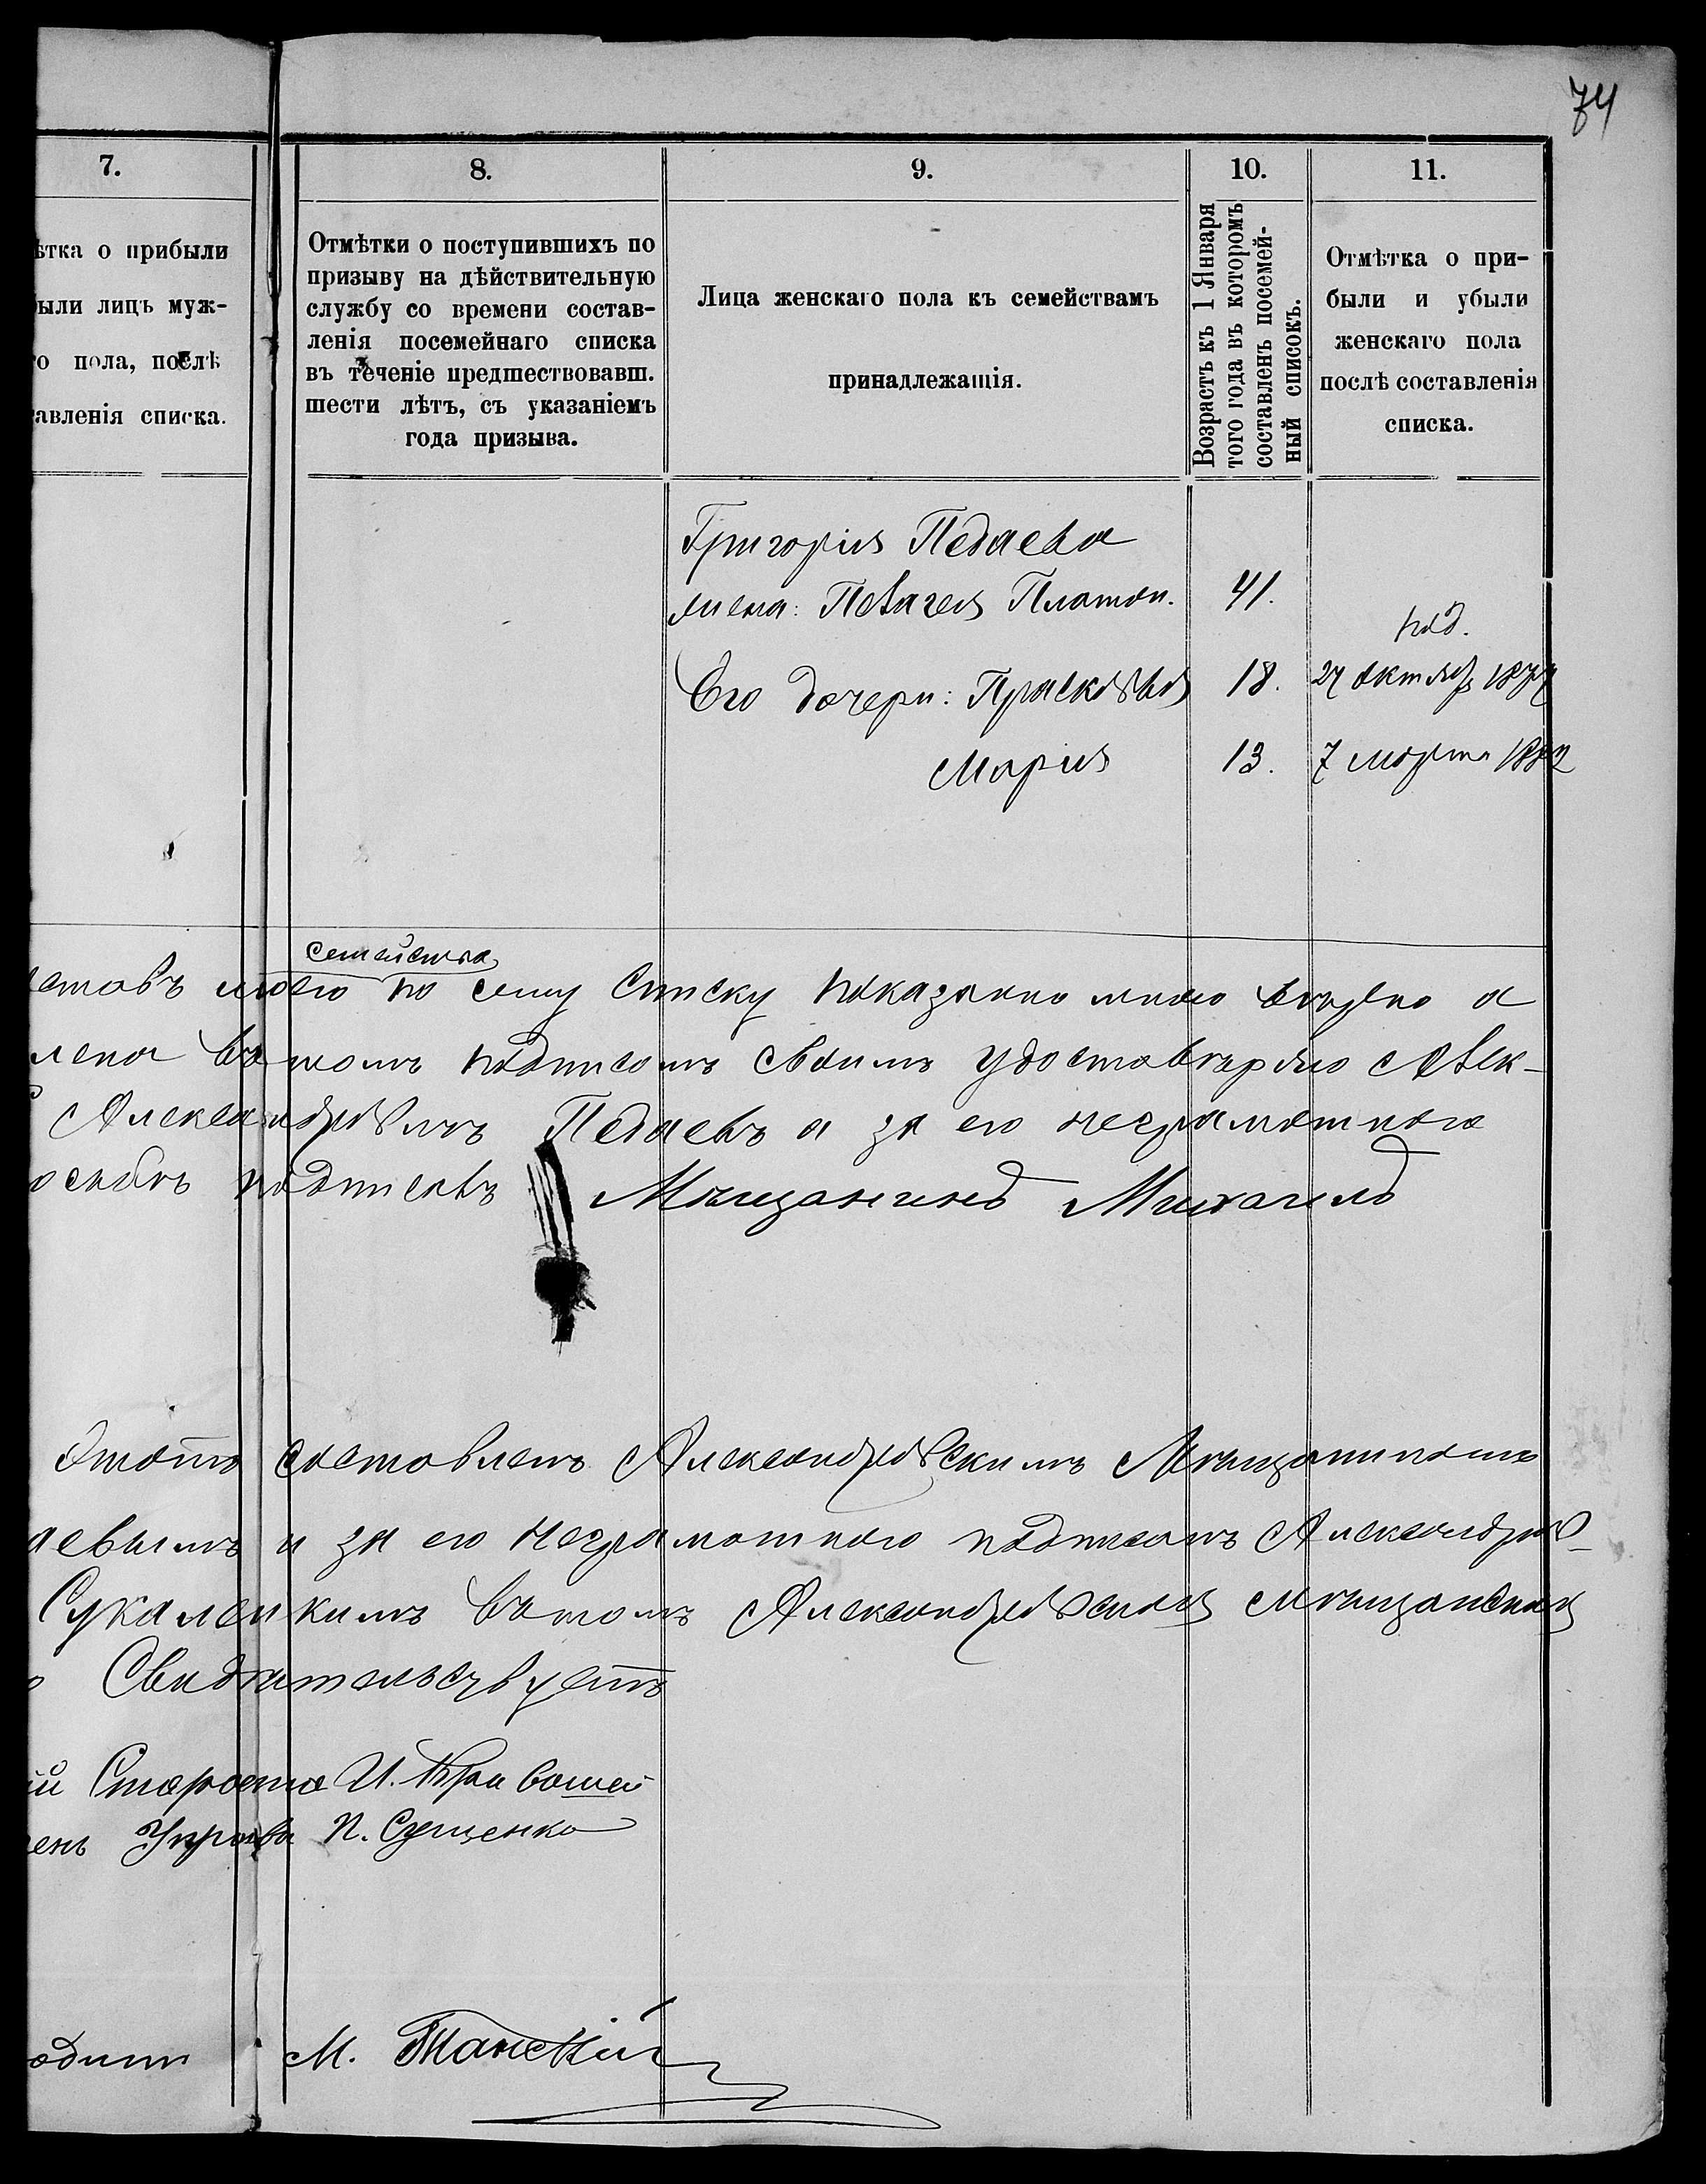 74
7.
ѣтка о прибыли
ыли лицъ муж-
го пола, послѣ
тавленія списка.
8.
Отмѣтки о поступившихъ по
призыву на дѣйствительную
службу со времени состав-
ленія посемейнаго списка
въ теченіе предшествовавш.
шести лѣтъ, съ указаніемъ
года призыва.
9.
Лица женскаго пола къ семействамъ
принадлежащія.
10.
Возрастъ къ 1 Января
того года въ которомъ
составленъ посемей-
ный списокъ.
11.
Отмѣтка о при-
были и убыли
женскаго пола
послѣ составленія
списка.
Григорія Педаева
жена: Пелагея Платон. 41.
род.
Его дочери: Прасковья 18. 27 октябр 1874
Марія 13. 7 марта 1882
семейства
ставъ моего по сему списку показанно мною вѣрно а
лена въ томъ подписомъ своимъ удостовѣряю Алек-
Александровичъ Педаевъ а за его неграмотного
подписавъ Мѣщанинъ Михаилъ
Этотъ составленъ Александровскимъ Мѣщаниномъ
аевымъ и за его неграмотного подписанъ Александров-
Сукаленкимъ въ томъ Александровская Мѣщанская
Свидѣтельствуетъ
ій Староста И. Кривошей
ленъ Управы П. Сущенко
одит М. Танскій